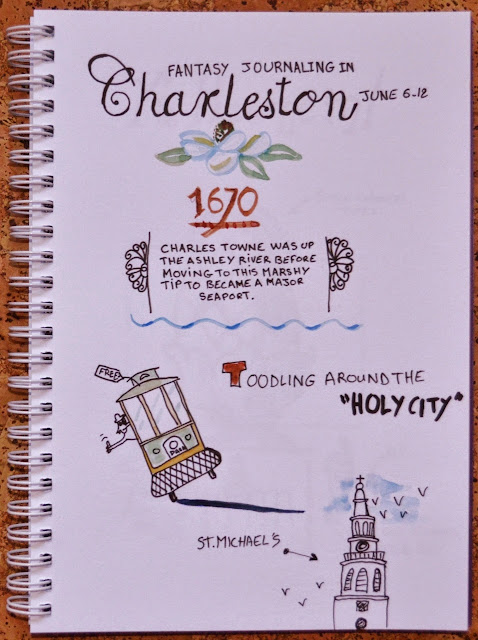 FANTASY JOURNALING IN
Charleston JUNE 6-12
1670
CHARLES TOWNE WAS UP
THE ASHLEY RIVER BEFORE
MOVING TO THIS MARSHY
TIP TO BECAME A MAJOR
SEAPORT.
FREE
TOODLING AROUND THE
"HOLY CITY"
ST. MICHAEL'S